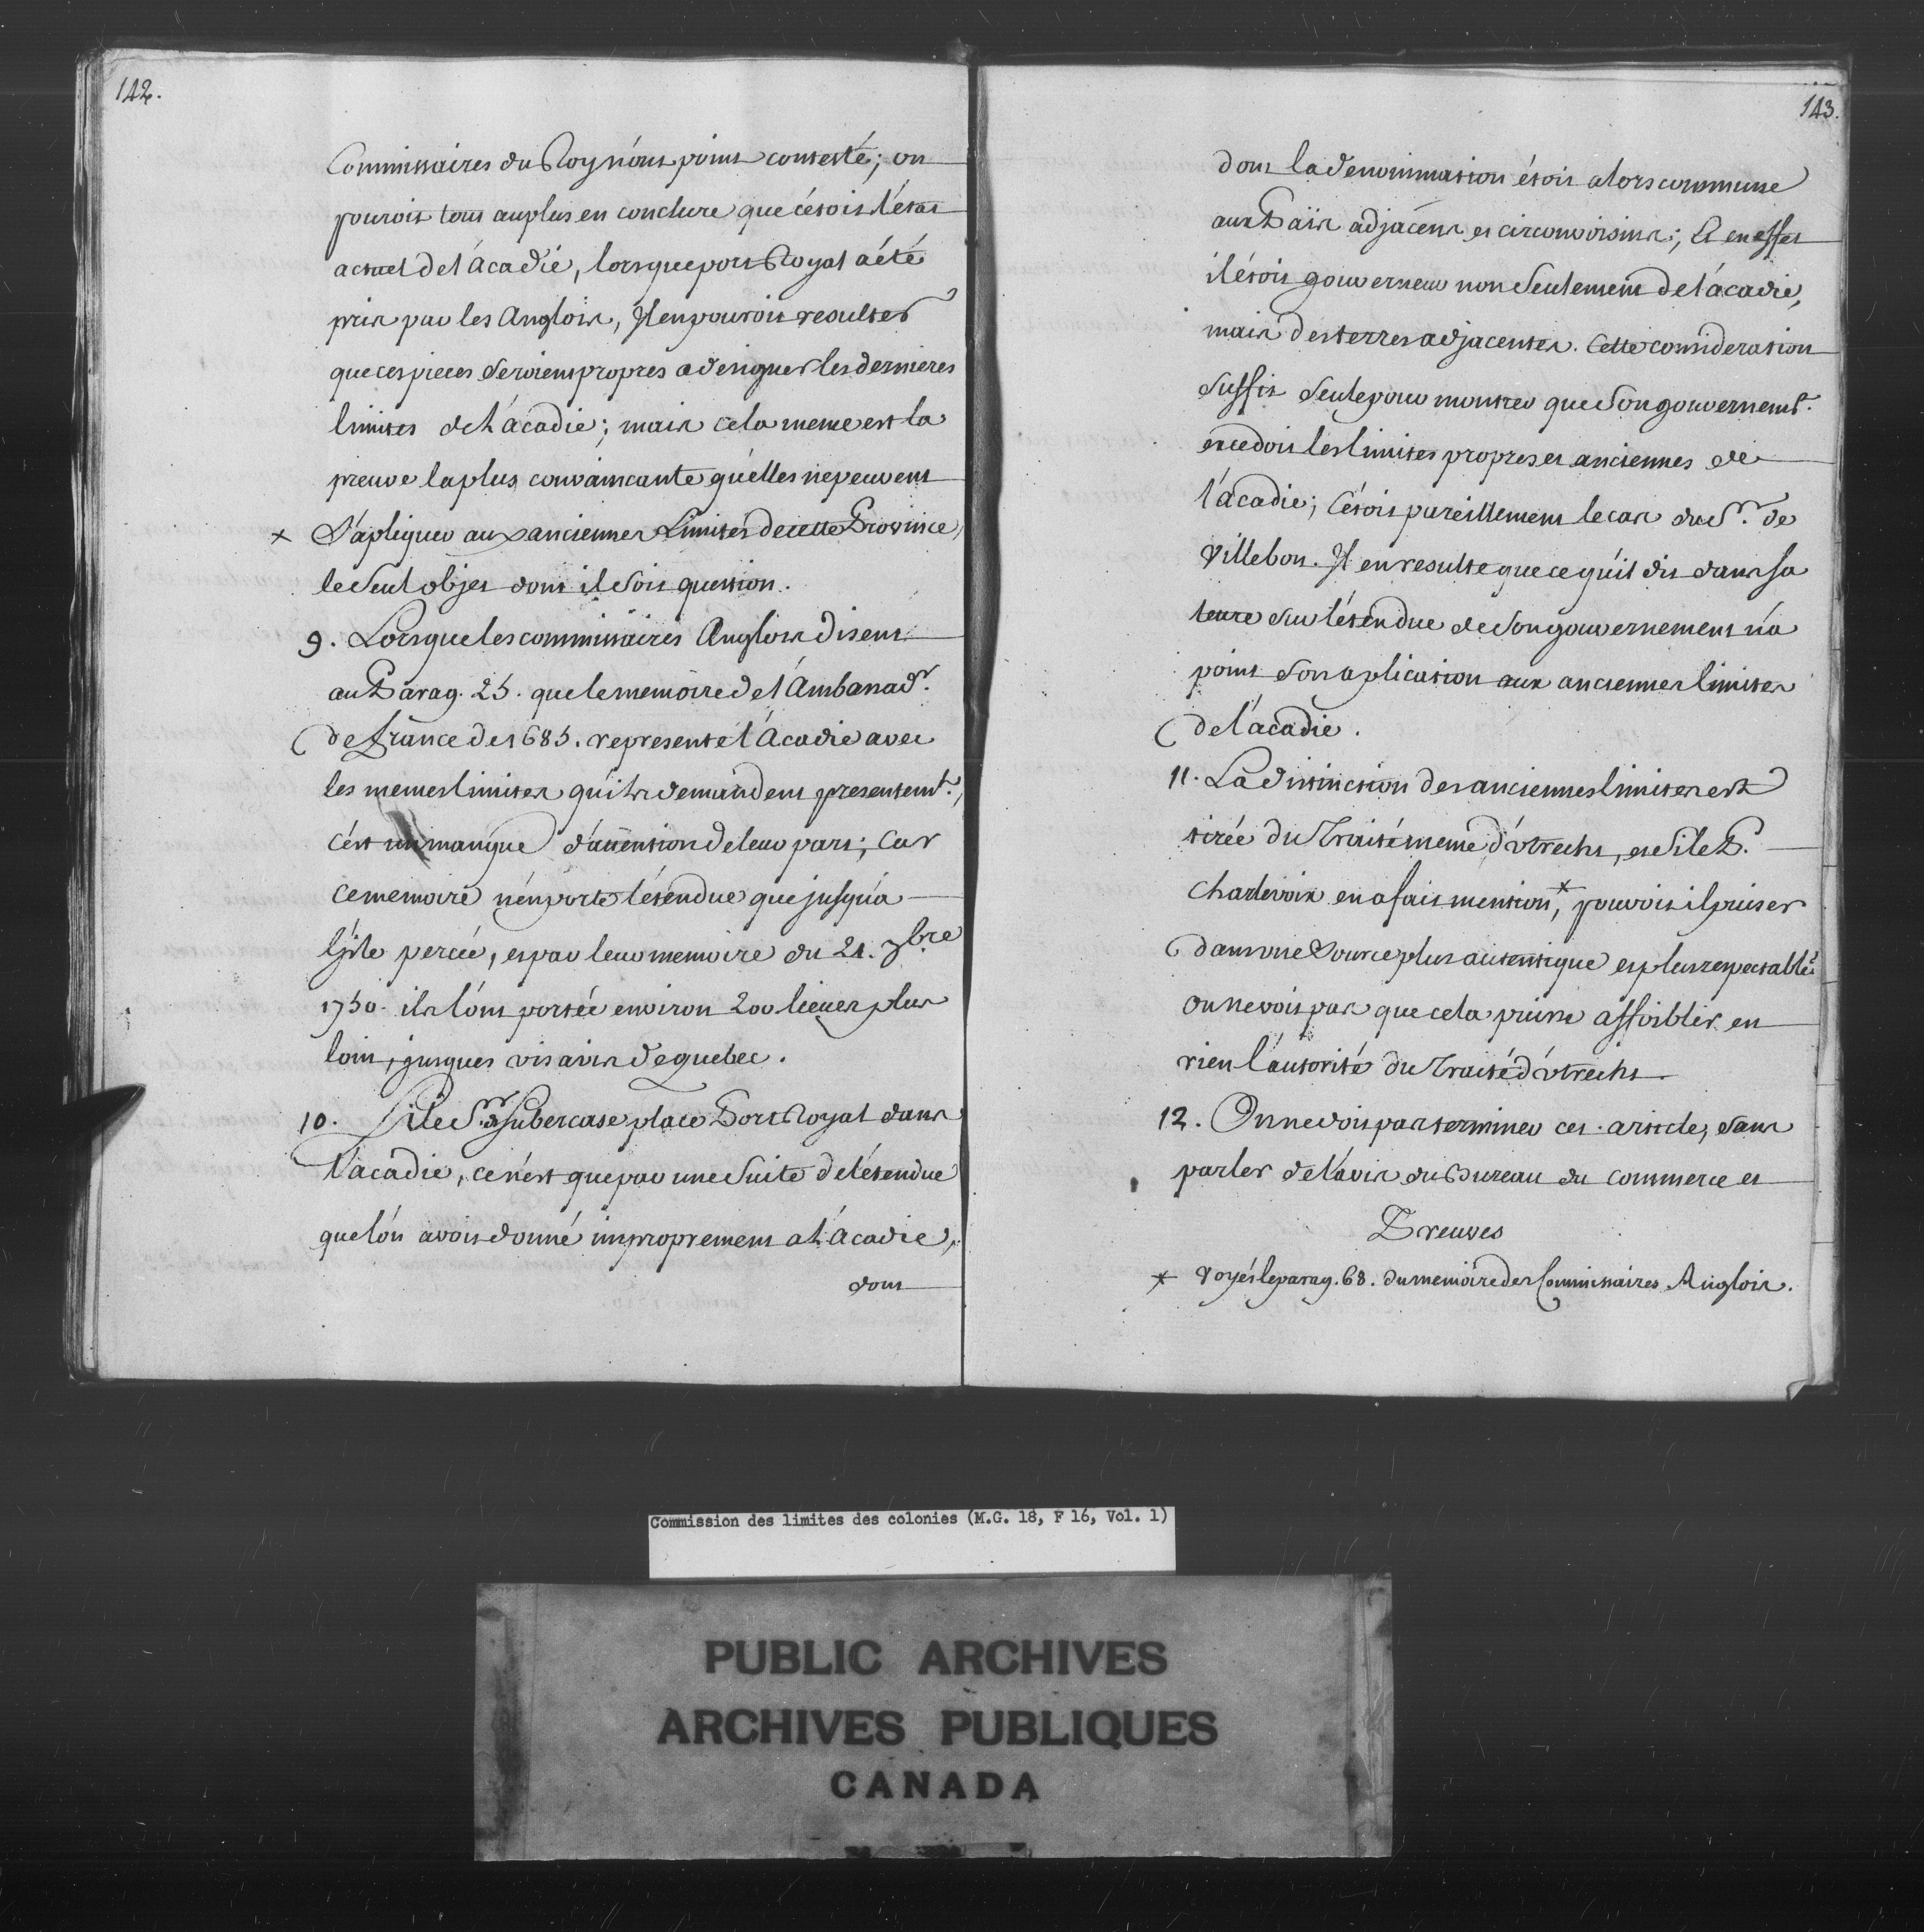 142.
Commissaires du Roy n'ont point contesté; on
pouroit tout au plus en conclure que c'étoit l'état
actuel de l'Acadie, lorsque port Royal a été
pris par les Anglois, Il en pouroit resulter
que ces pieces seroient propres a designer les dernieres
limites de l'acadie; mais cela meme est la
preuve la plus convaincante qu'elles ne peuvent
x S'apliquer aux anciennes Limites de cette Province,
le seul objet dont il soit question.
9. Lorsque les commissaires Anglois disent
au Parag. 25. que le memoire de l'Ambassadr.
de france de 1685. represente l'Acadie avec
les memes limites qu'ils demandent presentemt.,
c'est un manque d'attention de leur part; Car
ce memoire n'en porte l'étendue que jusqu'a
l'isle percée, et par leur memoire du 21. 7bre
1750. ils l'ont portée environ 200 lieues plus
loin, jusques vis avis de quebec.
10. Si le Sr. de Subercase place Port Royal dans
l'acadie, ce n'est que par une Suite de l'étendue
que l'on avoit donné improprement a l'Acadie,
dont
143.
dont la denomination étoit alors commune
aux Païs adjacens et circonvoisins; Et en effet
il étoit gouverneur non Seulement de l'acadie,
mais des terres adjacentes. Cette consideration
suffit seule pour montrer que Son gouvernemt.
excedoit les limites propres et anciennes de
l'acadie; C'étoit pareillement le cas du Sr. de
Villebon. Il en resulte que ce qu'il dit dans sa
lettre sur l'étendue de Son gouvernement n'a
point Son aplication aux anciennes limites
de l'acadie.
11. La distinction des anciennes limites est
tirée du Traité meme d'Utrecht, et Si le P.
Charlevoix en a fait mention,* pouvoit il puiser
dans une Source plus autentique et plus respectable?
on ne voit pas que cela puisse affoiblir en
rien l'autorité du Traité d'Utrecht.
12. On ne doit pas terminer cet article, sans
parler de l'avis du Bureau du commerce et
Preuves
* Voyés le parag. 68. du memoire des Commissaires Anglois.
Commission des limites des colonies (M.G. 18, F 16, Vol. 1)
PUBLIC ARCHIVES
ARCHIVES PUBLIQUES
CANADA